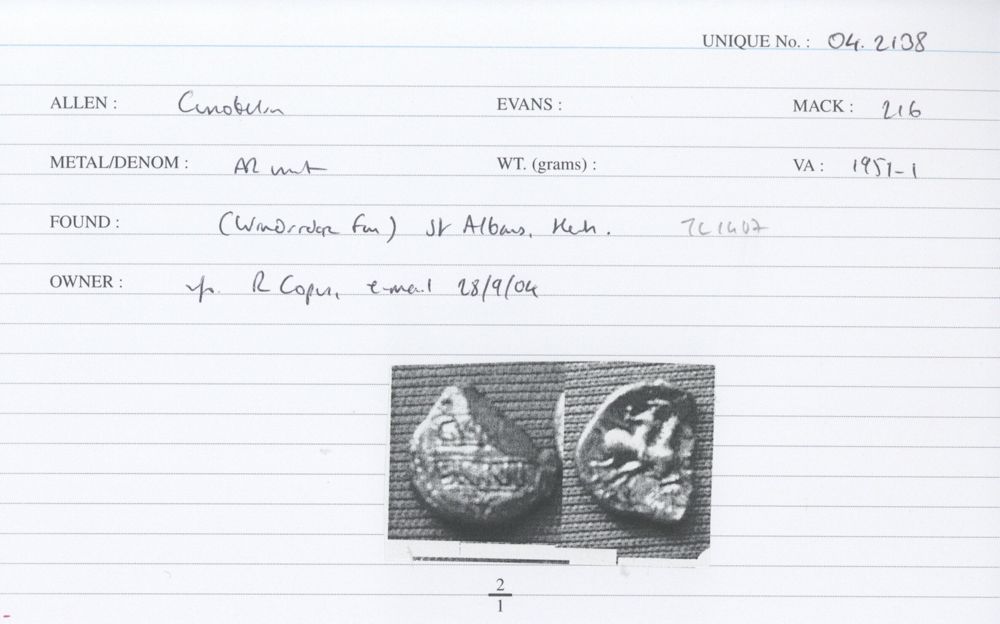 UNIQUE No. : 04. 2138
ALLEN : Cunobelin EVANS : MACK : 216
METAL/DENOM : AR unit WT. (grams) : VA : 1951-1
FOUND : (Windridge Farm) St Albans, Herts. TL 1407
OWNER : R e-mail 28/9/04
2
1